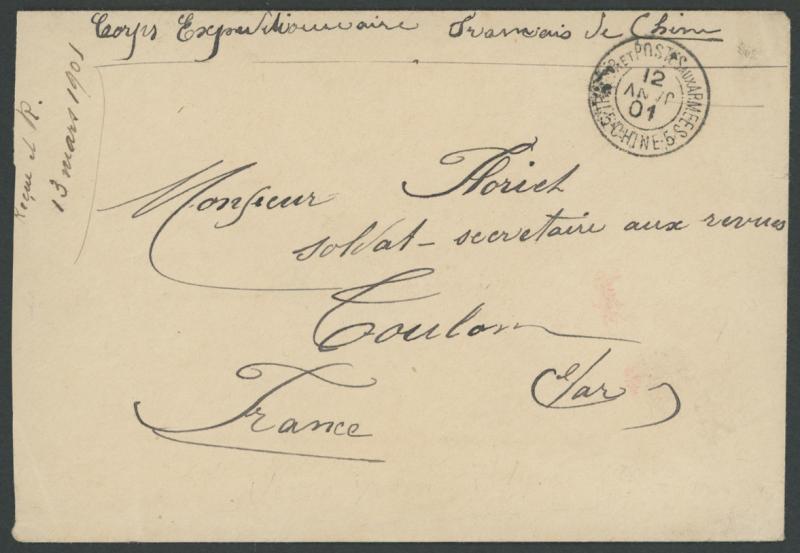 Corps Expeditionnaire Francais de Chine
TRESOR ET POSTES AUX ARMEES
12
JANV
01
5 CHINE 5
Reçue et R.
13 mars 1901
Monsieur Floriet
soldat - secretaire aux revues
Toulon
Var
France